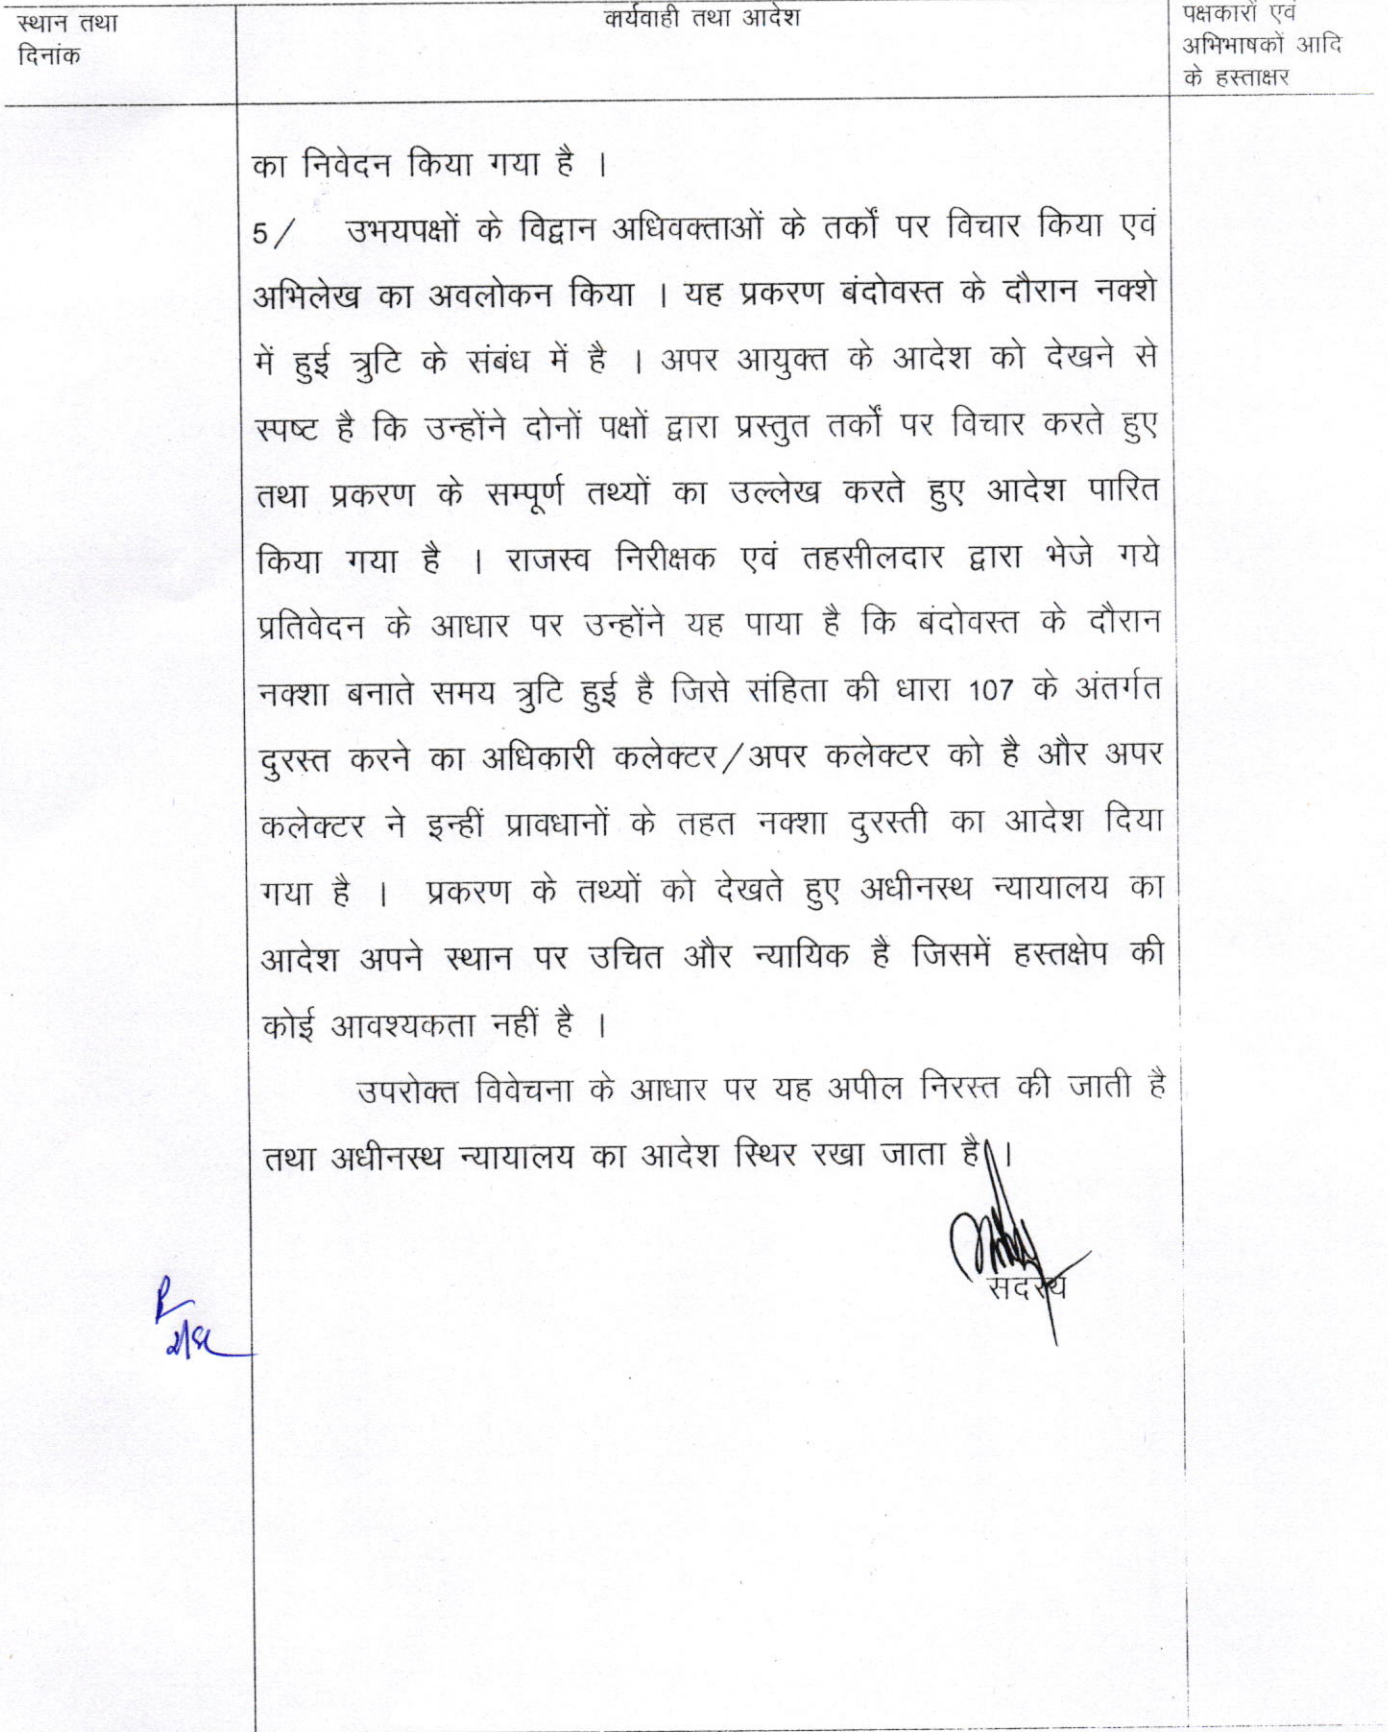 स्थान तथा
दिनांक
कार्यवाही तथा आदेश
पक्षकारों एवं
अभिभाषकों आदि
के हस्ताक्षर
का निवेदन किया गया है ।
5/ उभयपक्षों के विद्वान अधिवक्ताओं के तर्कों पर विचार किया एवं
अभिलेख का अवलोकन किया । यह प्रकरण बंदोवस्त के दौरान नक्शे
में हुई त्रुटि के संबंध में है । अपर आयुक्त के आदेश को देखने से
स्पष्ट है कि उन्होंने दोनों पक्षों द्वारा प्रस्तुत तर्कों पर विचार करते हुए
तथा प्रकरण के सम्पूर्ण तथ्यों का उल्लेख करते हुए आदेश पारित
किया गया है । राजस्व निरीक्षक एवं तहसीलदार द्वारा भेजे गये
प्रतिवेदन के आधार पर उन्होंने यह पाया है कि बंदोवस्त के दौरान
नक्शा बनाते समय त्रुटि हुई है जिसे संहिता की धारा 107 के अंतर्गत
दुरस्त करने का अधिकारी कलेक्टर/अपर कलेक्टर को है और अपर
कलेक्टर ने इन्हीं प्रावधानों के तहत नक्शा दुरस्ती का आदेश दिया
गया है । प्रकरण के तथ्यों को देखते हुए अधीनस्थ न्यायालय का
आदेश अपने स्थान पर उचित और न्यायिक है जिसमें हस्तक्षेप की
कोई आवश्यकता नहीं है ।
उपरोक्त विवेचना के आधार पर यह अपील निरस्त की जाती है
तथा अधीनस्थ न्यायालय का आदेश स्थिर रखा जाता है ।
सदस्य